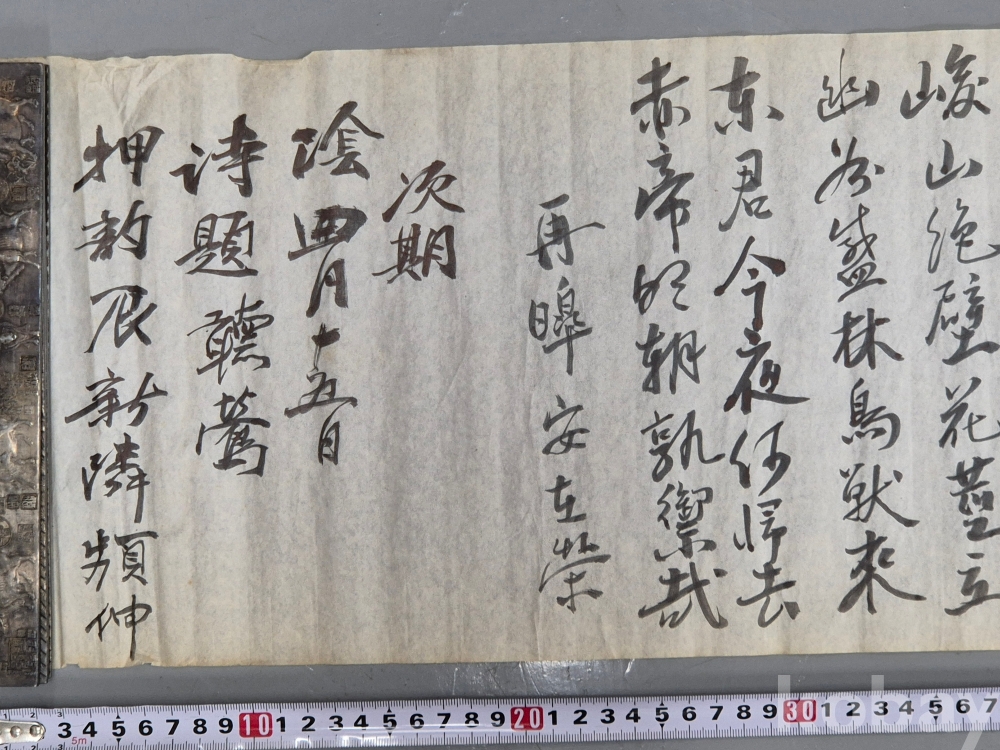 峻山絶壁花立
幽谷盛林鳥獣來
東君今夜何帰去
赤帝明朝孰禦哉
再皞 安在榮
次期
陰四月十五日
詩題 聽鶯
押韵 辰新隣頻伸
3 4 5 6 7 8 9 10 1 2 3 4 5 6 7 8 9 20 1 2 3 4 5 6 7 8 9 30 1 2 3 4 5 6 7
5m